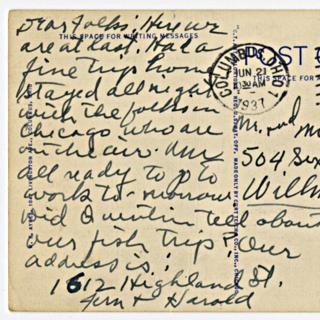 Dear Folks: Here we
THIS SPACE FOR WRITING MESSAGES
are at last. Had a
fine trip home
stayed all night
with the folks in
Chicago who are
on the air. Are
all ready to go to
work to-morrow
Did Quentin tell about
our fish trip? Our
address is:
1612 Highland St.
Fern & Harold
POST
THIS SPACE FOR
COLUMBUS, OHIO
JUN 21
30AM
1937
Mr. and M
504 Six
Willm